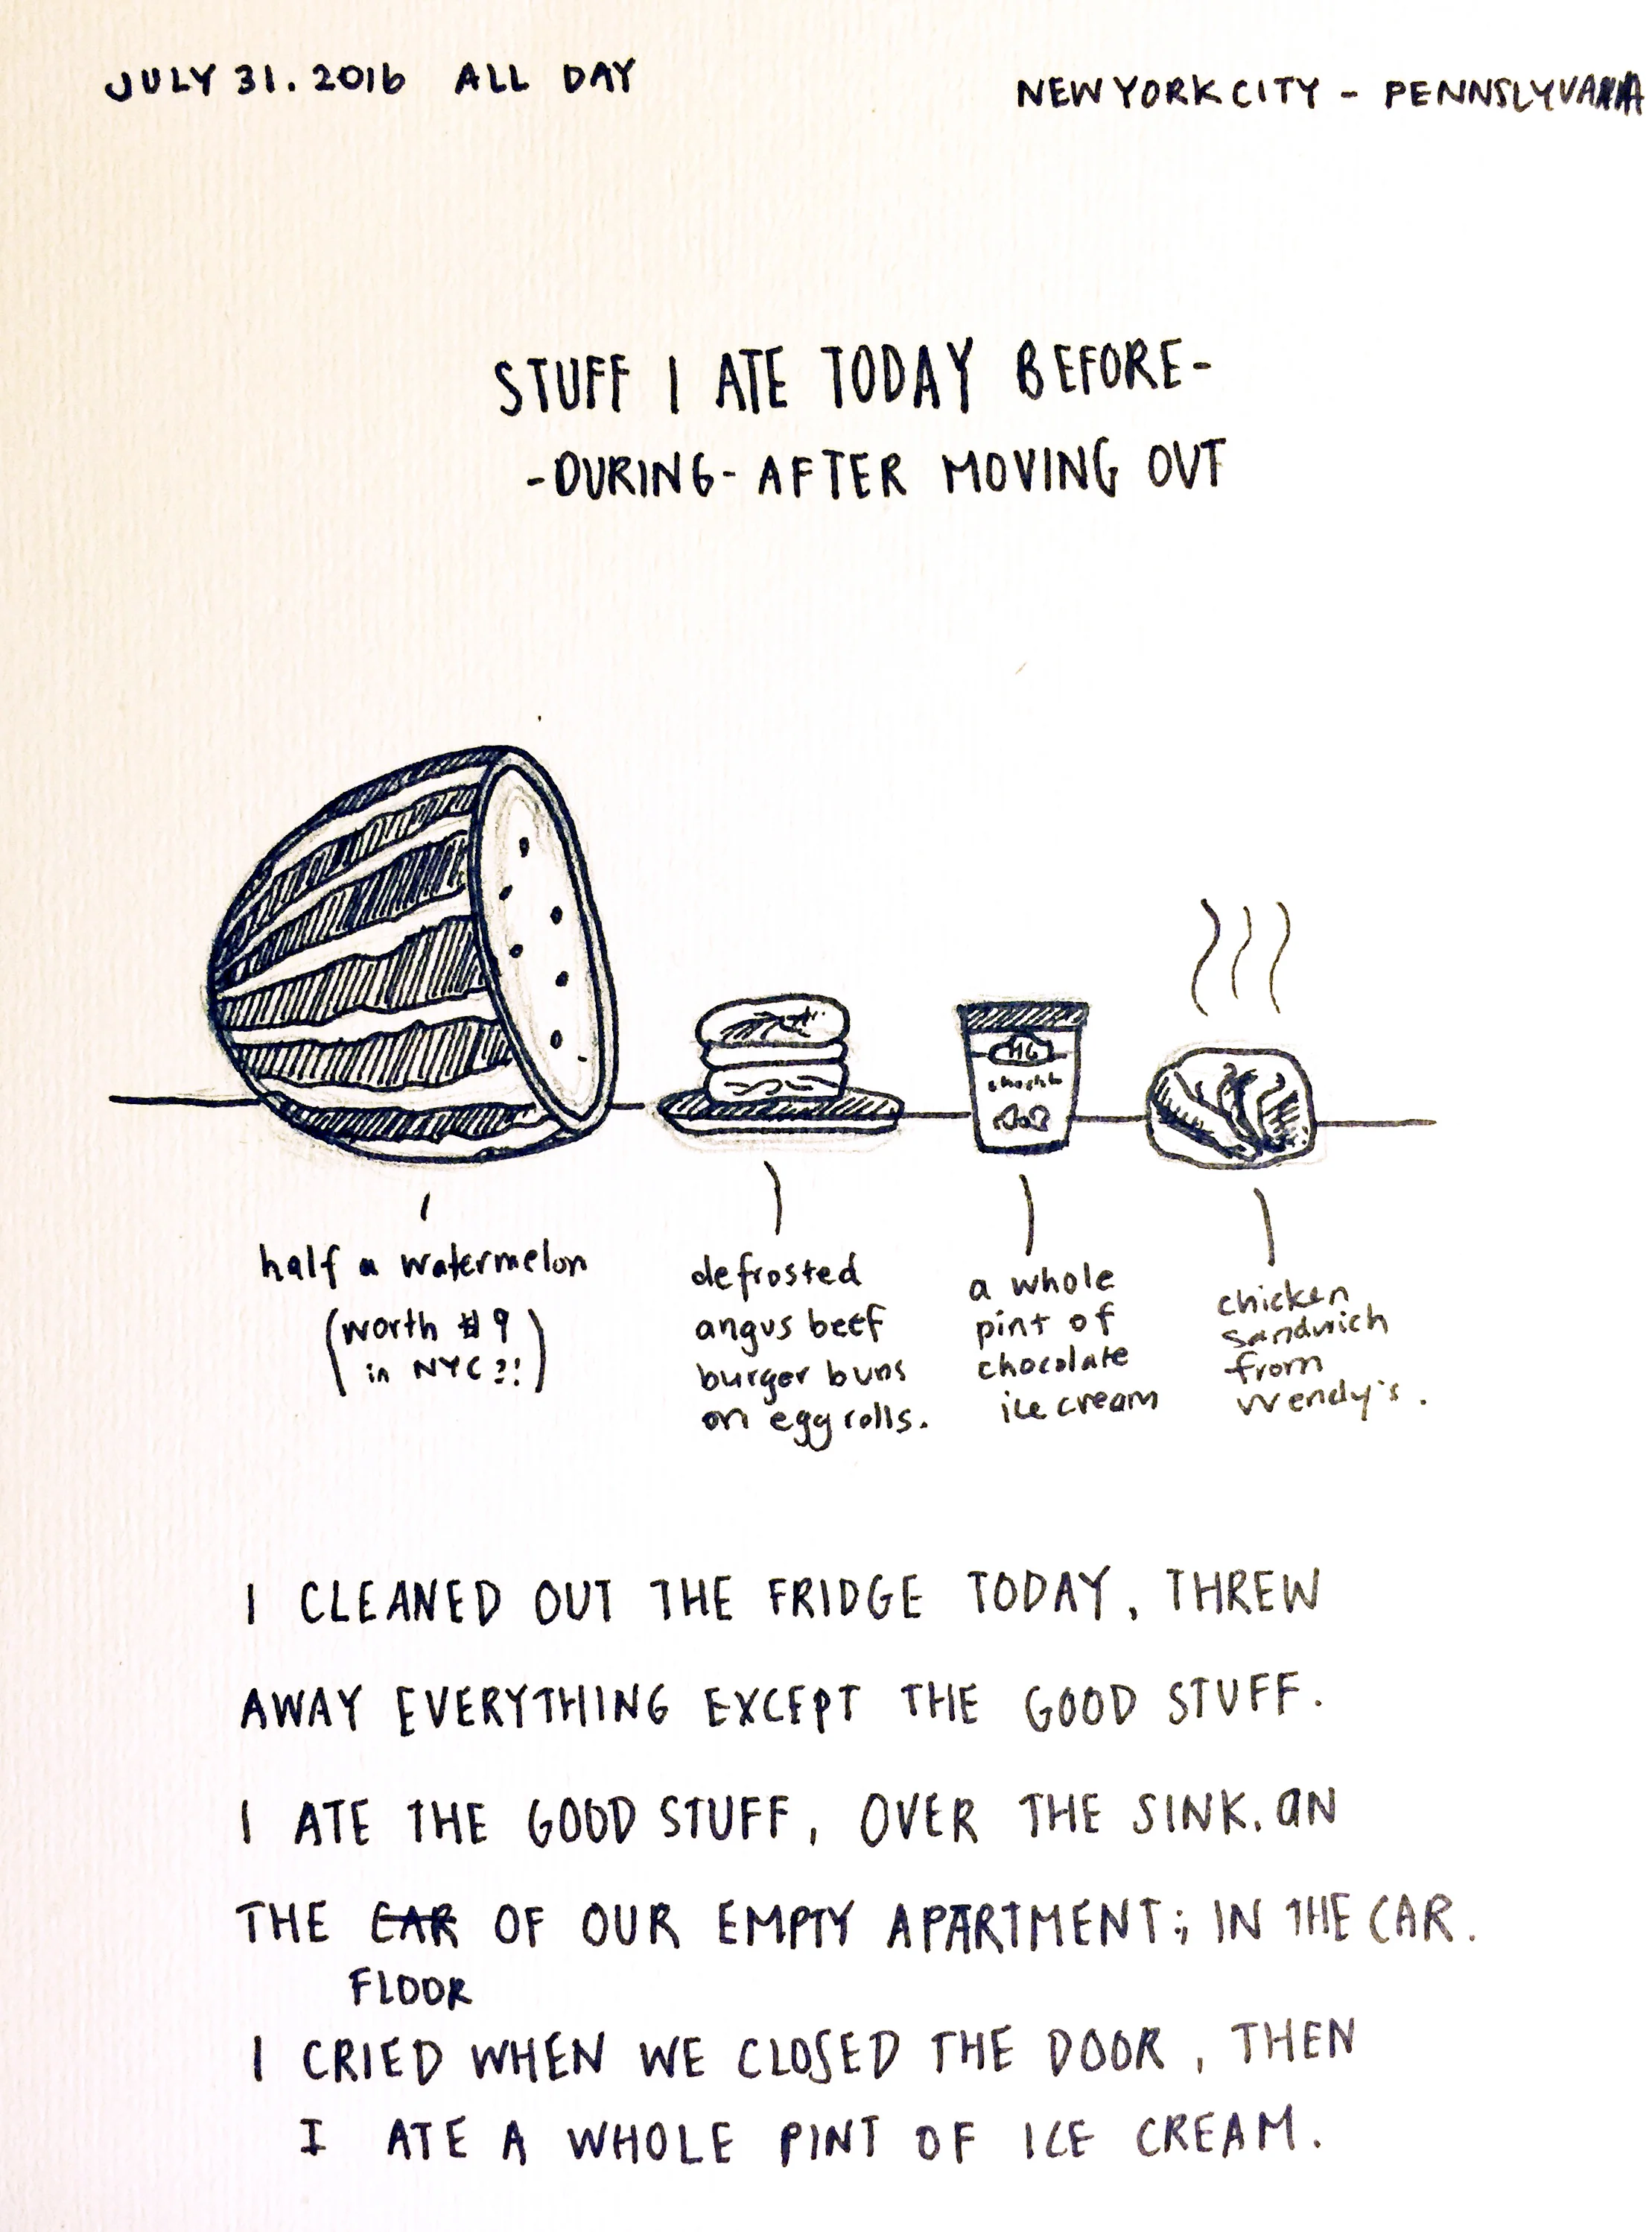 JULY 31. 2016 ALL DAY
NEW YORK CITY - PENNSLYVANIA
STUFF I ATE TODAY BEFORE-
-DURING- AFTER MOVING OUT
HG
half a watermelon
(worth $9
in NYC?!)
defrosted
angus beef
burger buns
on egg rolls.
a whole
pint of
chocolate
ice cream
chicken
sandwich
from
Wendy's.
I CLEANED OUT THE FRIDGE TODAY, THREW
AWAY EVERYTHING EXCEPT THE GOOD STUFF.
I ATE THE GOOD STUFF, OVER THE SINK. ON
THE CAR OF OUR EMPTY APARTMENT; IN THE CAR.
FLOOR
I CRIED WHEN WE CLOSED THE DOOR, THEN
I ATE A WHOLE PINT OF ICE CREAM.